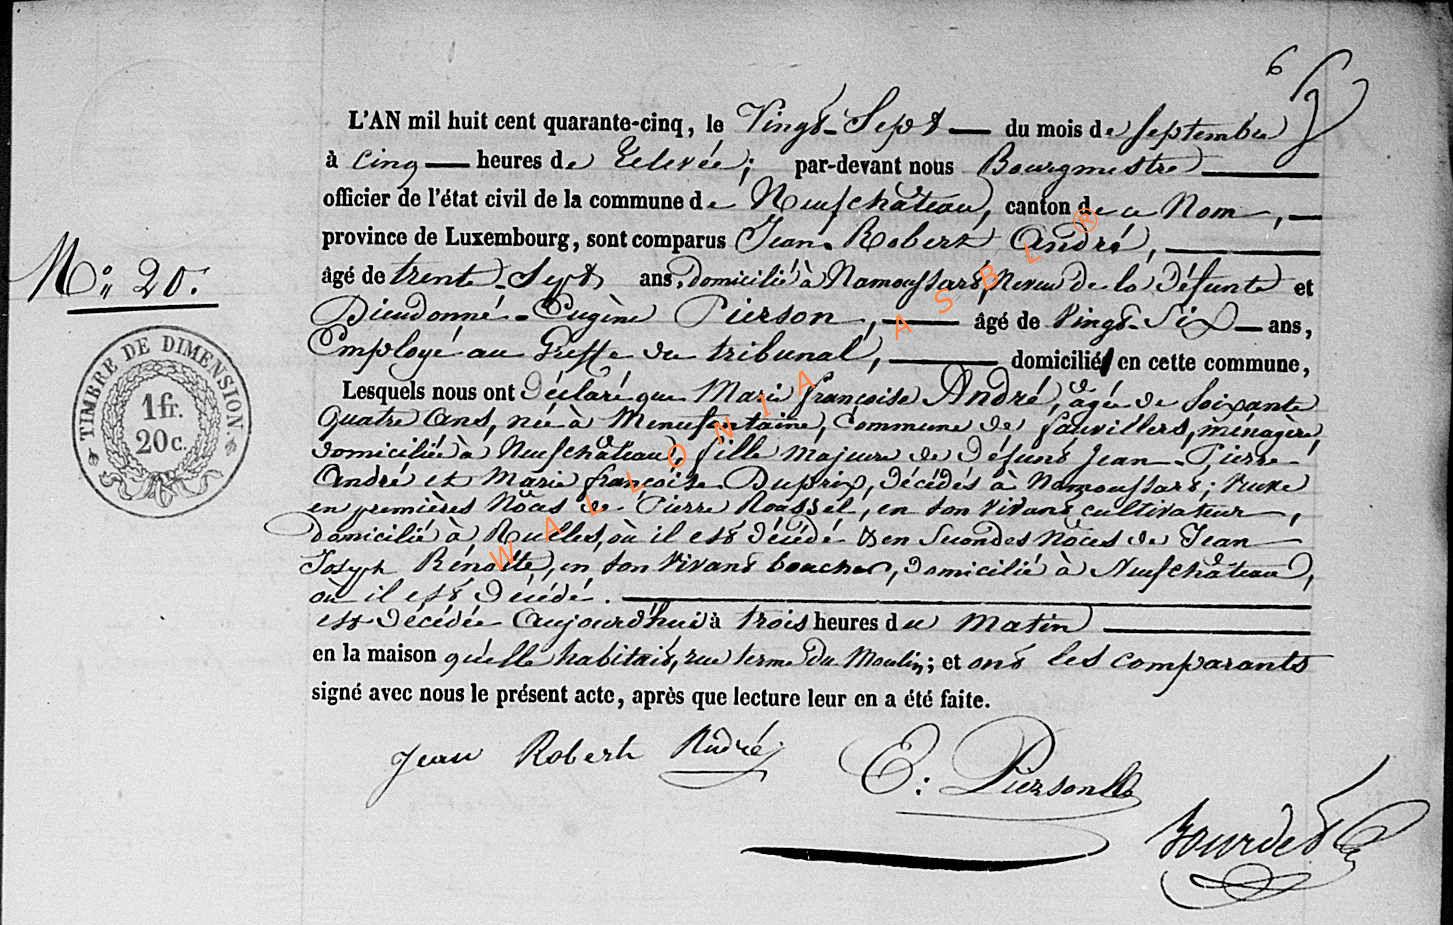 6
L'AN mil huit cent quarante-cinq, le Vingt-Sept du mois de septembre
à cinq heures de relevée; par-devant nous Bourgmestre
officier de l'état civil de la commune de Neufchâteau, canton de ce Nom,
province de Luxembourg, sont comparus Jean-Robert André,
N.o 20.
âgé de trente-Sept ans, domicilié à Namoussart, Neveu de la défunte et
Dieudonné-Eugène Pierson, âgé de Vingt-Six ans,
Employé au Greffe du tribunal, domicilié en cette commune,
TIMBRE DE DIMENSION
1 fr.
20 c.
Lesquels nous ont déclaré que Marie françoise André, âgée de Soixante
quatre ans, née à Menufontaine, Commune de fauvillers, ménagère,
domiciliée à Neufchâteau, fille majeure de défunt Jean-Pierre
André et Marie françoise Duprix, décédés à Namoussart; Veuve
en premières Nôces de Pierre Roussel, en son vivant cultivateur,
domicilié à Rulles, où il est décédé & en Secondes Nôces de Jean
Joseph Rénotte, en son vivant boucher, domicilié à Neufchâteau,
où il est décédé.
est décédée aujourd'hui à trois heures du matin
en la maison qu'elle habitait, rue terme du Moulin; et ont les comparants
signé avec nous le présent acte, après que lecture leur en a été faite.
Jean Robert André
E: Pierson
Bourdet
WALLONIA ASBL ®